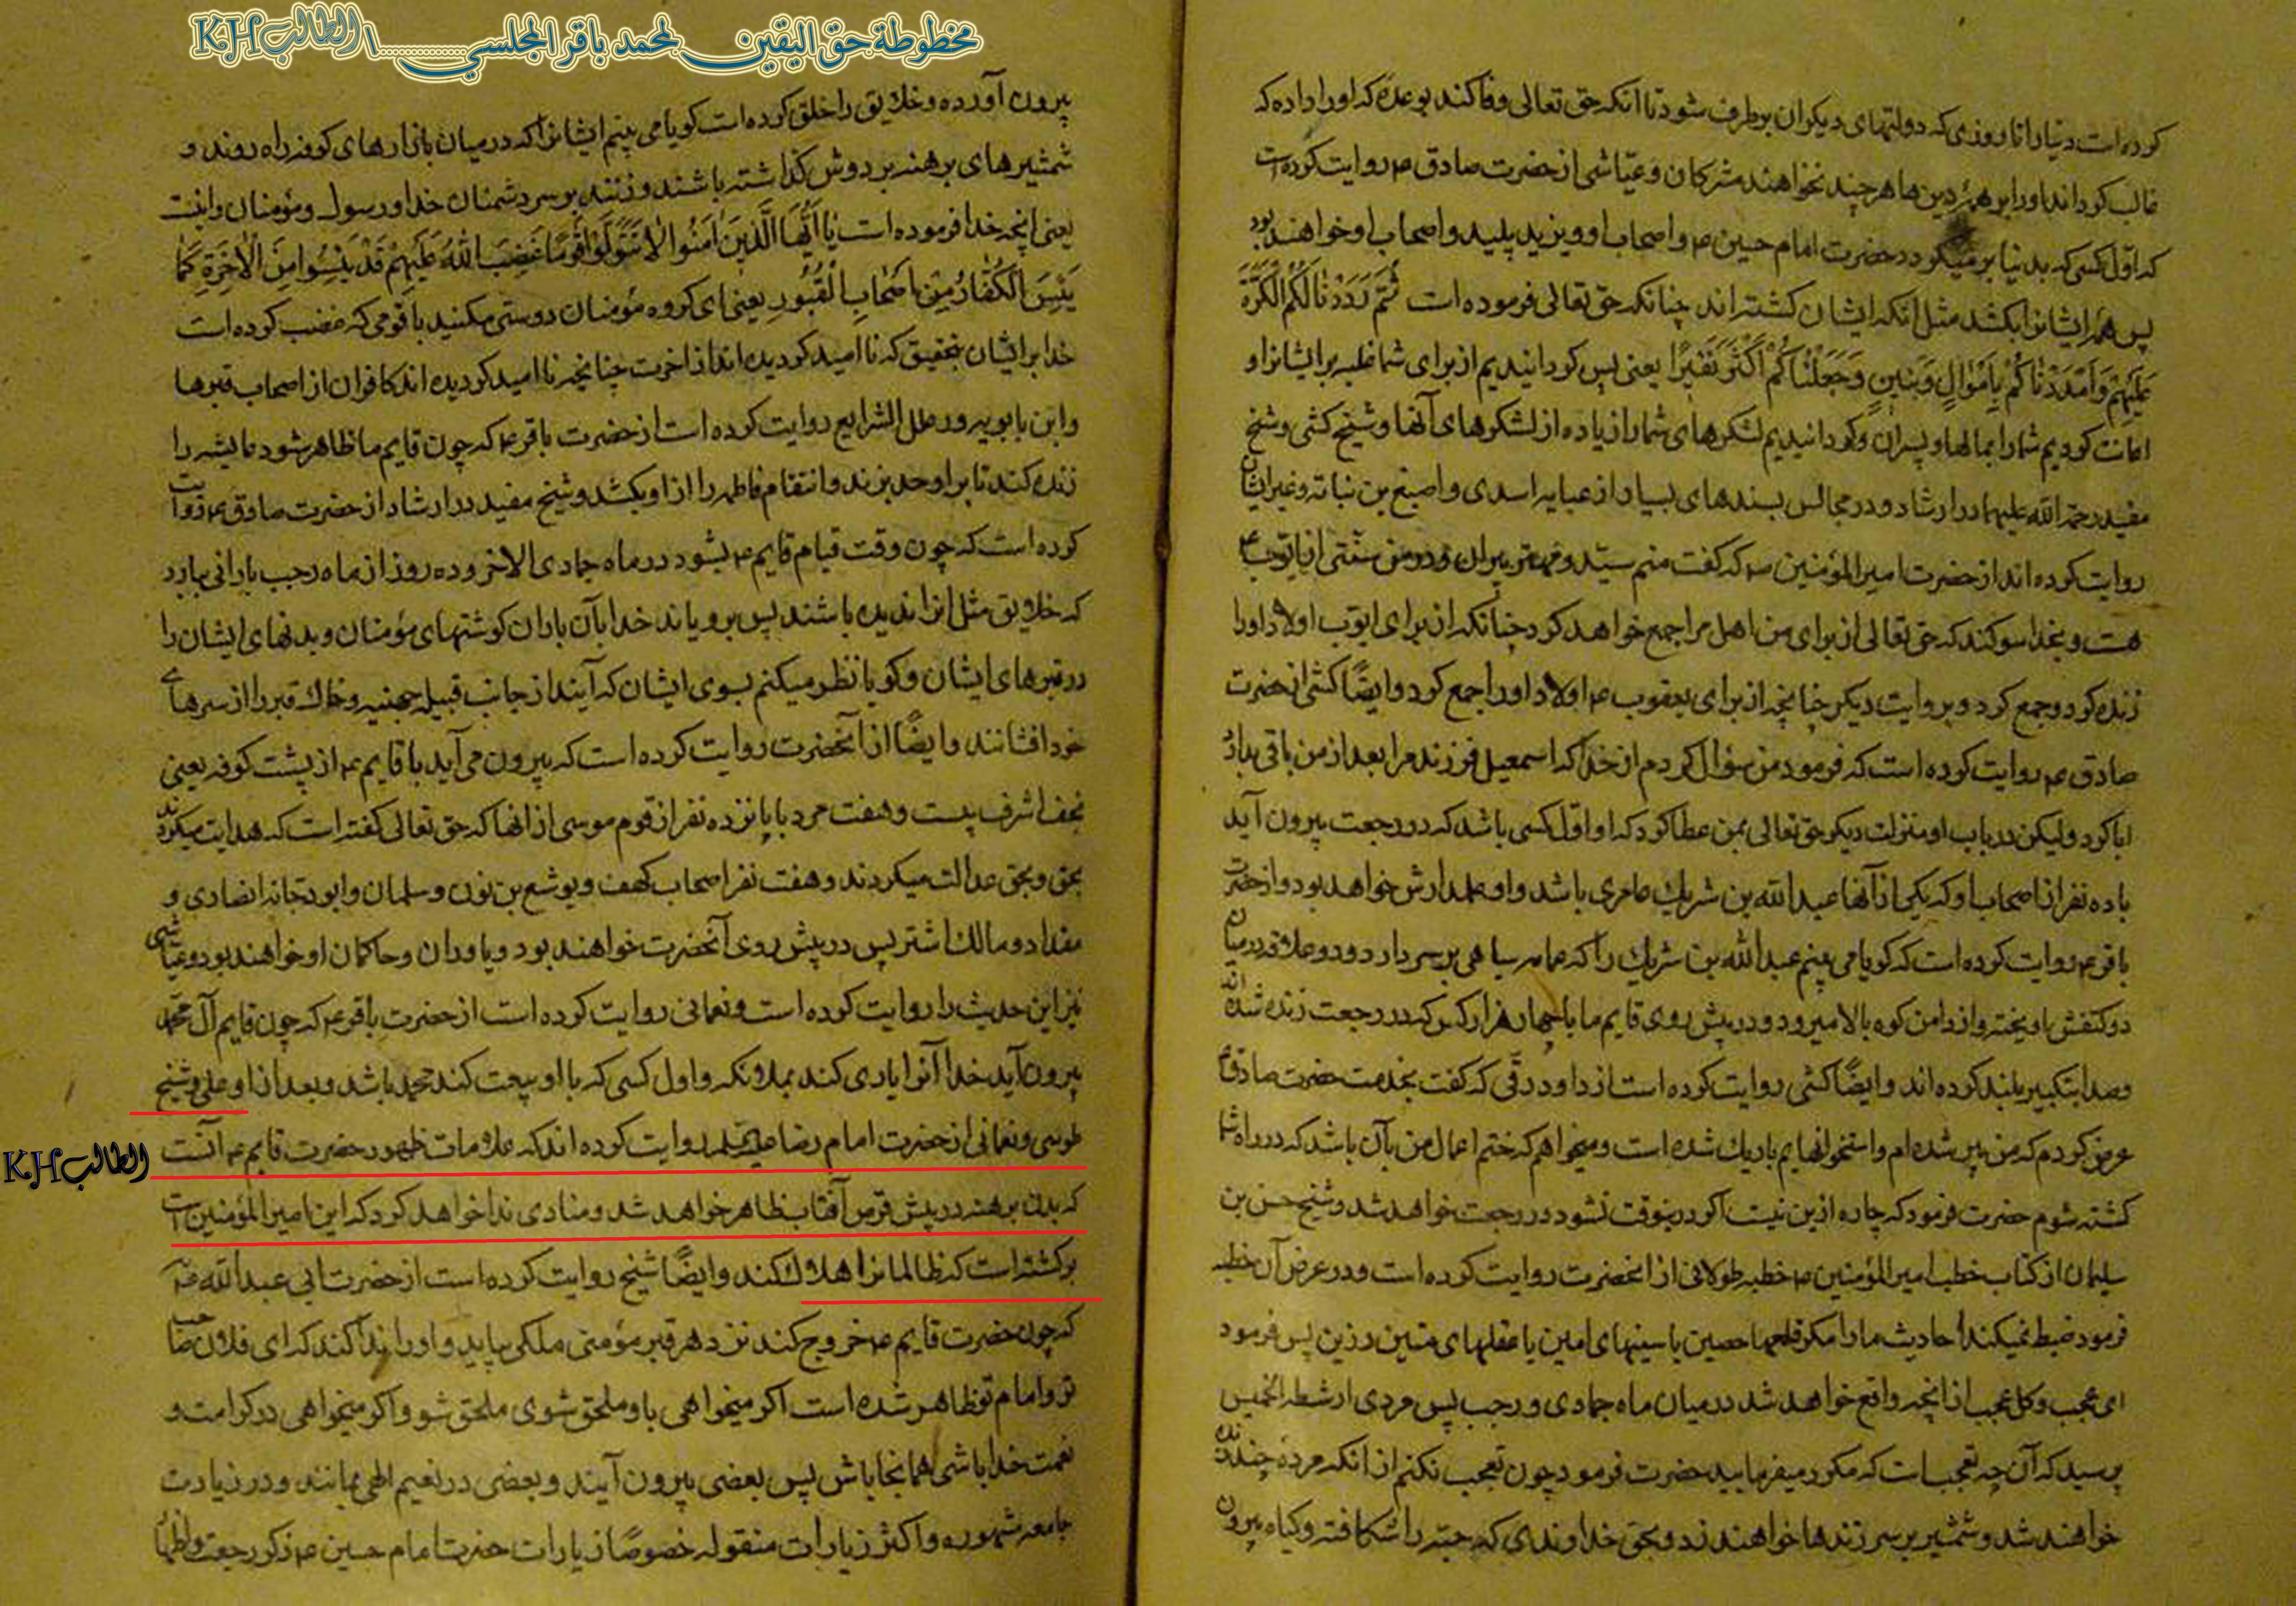 مخطوطة حق اليقين لمحمد باقر المجلسي ١ الطالب KH
كرده است دنيا را تا روزى كه دولتهاى ديكران برطرف شود تا انكه حق تعالى وفا كند بوعدۀ كه او را داده كه
غالب كرداند او را بر همۀ دين ها هر چند نخواهند مشركان و عيّاشى از حضرت صادق ع روايت كرده است
كه اوّل كسى كه بدنيا برميكردد حضرت امام حسين ع و اصحاب او و يزيد پليد و اصحاب او خواهند بود
پس همه ايشانرا بكشد مثل انكه ايشان كشته اند چنانكه حق تعالى فرموده است ثُمَّ رَدَدْنٰا لَكُمُ الْكَرَّةَ
عَلَيْهِمْ وَاَمْدَدْنٰاكُمْ بِاَمْوٰالٍ وَبَنينَ وَجَعَلْنٰاكُمْ اَكْثَرَ نَفيرًا يعنى پس كردانيديم از براى شما غلبه بر ايشانرا و
اعانت كرديم شما را بمالها و پسران و كردانيديم لشكرهاى شما را زياده از لشكرهاى آنها و شيخ كشى و شيخ
مفيد رحمة الله عليهما در ارشاد و در مجالس بسندهاى بسيار از عبايه اسدى و اصبغ بن نباته و غير ايشان
روايت كرده اند از حضرت امير المؤمنين ع كه كفت منم سيّد و مهتر پيران و در من سنّتى از ايّوب ع
هست و بخدا سوكند كه حق تعالى از براى من اهل مرا جمع خواهد كرد چنانكه از براى ايّوب اولاد او را
زنده كرد و جمع كرد و بروايت ديكر چنانچه از براى يعقوب ع اولاد او را جمع كرد و ايضًا كشى از حضرت
صادق ع روايت كرده است كه فرمود من سؤال كردم از خدا كه اسمعيل فرزند مرا بعد از من باقى بدارد
ابا كرد و ليكن در باب او منزلت ديكر حق تعالى بمن عطا كرد كه او اوّل كسى باشد كه در رجعت بيرون آيد
با ده نفر از اصحاب او كه يكى از آنها عبد الله بن شريك عامرى باشد و او علمدارش خواهد بود و از حضرت
باقر ع روايت كرده است كه كويا مى بينم عبد الله بن شريك را كه عمامه سياهى بر سر دارد و دو علاقه در ميان
دو كتفش باويخته و از دامن كوه بالا ميرود و در پيش روى قايم ما با چهار هزار كس كه در رجعت زنده شده اند
و صدا بتكبير بلند كرده اند و ايضًا كشى روايت كرده است از داود رقّى كه كفت بخدمت حضرت صادق ع
عرض كردم كه من پير شده ام و استخوانهايم باريك شده است و ميخواهم كه ختم اعمال من بآن باشد كه در راه شما
كشته شوم حضرت فرمود كه چاره ازين نيست اكر درينوقت نشود در رجعت خواهد شد و شيخ حسن بن
سليمان از كتاب خطب امير المؤمنين ع خطبه طولانى از انحضرت روايت كرده است و در عرض آن خطبه
فرمود ضبط نميكند احاديث ما را مكر قلعها حصين يا سينهاى امين يا عقلهاى متين رزين پس فرمود
اى عجب و كل عجب از انچه واقع خواهد شد در ميان ماه جمادى و رجب پس مردى از شرطة الخميس
پرسيد كه آن چه تعجب است كه مكرر ميفرماييد حضرت فرمود چون تعجب نكنم از انكه مردۀ چند زنده
خواهند شد و شمشير بر سر زندها خواهند زد و بحق خداوندى كه حبّه را شكافته و كياه بيرون
بيرون آورده و خلايق را خلق كرده است كويا مى بينم ايشانرا كه در ميان بازارهاى كوفه راه روند و
شمشيرهاى برهنه بر دوش كذاشته باشند و زنند بر سر دشمنان خدا و رسول و مؤمنان و اينست
يعنى انچه خدا فرموده است يٰا اَيُّهَا الَّذينَ اٰمَنُوا لاٰ تَتَوَلَّوْا قَوْمًا غَضِبَ اللّٰهُ عَلَيْهِمْ قَدْ يَئِسُوا مِنَ الْاٰخِرَةِ كَمٰا
يَئِسَ الْكُفّٰارُ مِنْ اَصْحٰابِ الْقُبُورِ يعنى اى كروه مؤمنان دوستى مكنيد با قومى كه غضب كرده است
خدا بر ايشان بتحقيق كه نااميد كرديده اند از اخرت چنانچه نااميد كرديده اند كافران از اصحاب قبرها
و ابن بابويه در علل الشرايع روايت كرده است از حضرت باقر ع كه چون قايم ما ظاهر شود عايشه را
زنده كند تا بر او حد بزند و انتقام فاطمه را از او بكشد و شيخ مفيد در ارشاد از حضرت صادق ع روايت
كرده است كه چون وقت قيام قايم ع بشود در ماه جمادى الاخر و ده روز از ماه رجب بارانى ببارد
كه خلايق مثل انرا نديده باشند پس بروياند خدا بآن باران كوشتهاى مؤمنان و بدنهاى ايشان را
در قبرهاى ايشان و كويا نظر ميكنم بسوى ايشان كه آيند از جانب قبيله جهينه و خاك قبر را از سرهاى
خود افشانند و ايضًا از آنحضرت روايت كرده است كه بيرون مى آيد با قايم ع از پشت كوفه يعنى
نجف اشرف بيست و هفت مرد با پانزده نفر از قوم موسى از انها كه حق تعالى كفته است كه هدايت ميكردند
بحق و بحق عدالت ميكردند و هفت نفر اصحاب كهف و يوشع بن نون و سلمان و ابو دجانه انصارى و
مقداد و مالك اشتر پس در پيش روى آنحضرت خواهند بود و ياوران و حاكمان او خواهند بود و عيّاشى
نيز اين حديث را روايت كرده است و نعمانى روايت كرده است از حضرت باقر ع كه چون قايم آل محمّد
بيرون آيد خدا آنرا يارى كند بملائكه و اول كسى كه با او بيعت كند محمد باشد و بعد از او على و شيخ
طوسى و نعمانى از حضرت امام رضا روايت كرده اند كه علامات ظهور حضرت قايم ع آنست
الطالب KH
كه بدن برهنه در پيش قرص آفتاب ظاهر خواهد شد و منادى ندا خواهد كرد كه اين امير المؤمنين است
بركشته است كه ظالمانرا هلاك كند و ايضًا شيخ روايت كرده است از حضرت ابى عبد الله ع
كه چون حضرت قايم ع خروج كند نزد هر قبر مؤمنى ملكى بيايد و او را ندا كند كه اى فلان صاحب
تو و امام تو ظاهر شده است اكر ميخواهى باو ملحق شوى ملحق شو و اكر ميخواهى در كرامت و
نعمت خدا باشى همانجا باش پس بعضى بيرون آيند و بعضى در نعيم الهى بمانند و در زيارت
جامعه مشهوره و اكثر زيارات منقوله خصوصًا زيارات حضرت امام حسين ع ذكر رجعت و اظهار